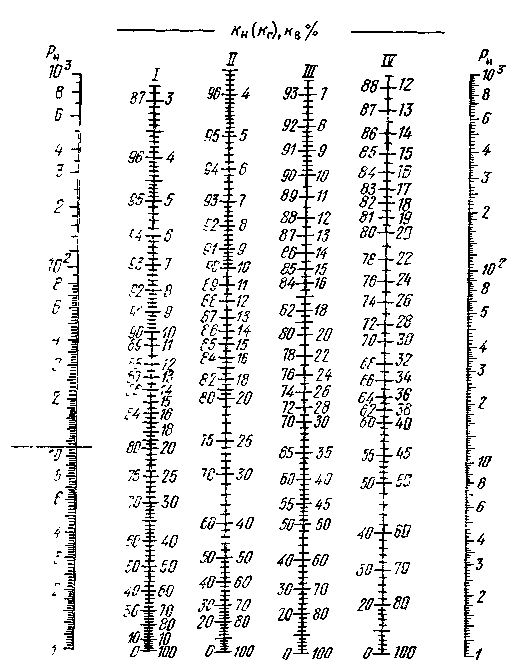 Kн(Kг), Kв %
Pн I II III IV Pн
10³ 10³
88 12
8 87 3 96 4 93 7 8
87 13
6 92 8 6
95 5 86 14
4 96 4 91 9 85 15 4
3 94 6 90 10 84 16 3
83 17
95 5 93 7 89 11 82 18
2 88 12 81 19 2
94 6 92 8 87 13 80 20
91 9 86 14
10² 93 7 90 10 85 15 78 22 10²
8 89 11 84 16 76 24 8
92 8 88 12 74 26
6 91 9 87 13 82 18 5
86 14 72 28
4 90 10 85 15 80 20 70 30 4
89 11 84 16 78 22
3 12 68 32 3
13 82 18 76 24 66 34
2 14 80 20 74 26 64 36 2
15 72 28 62 38
84 16 70 30 60 40
18
80 20 75 25
10 65 35 55 45 10
8 75 25 70 30 60 40 50 50 8
6 70 30 55 45 6
60 40 50 50
4 60 40 40 60 4
3 50 50 50 50 40 60 30 70 3
2 40 60 40 60 30 70 2
30 70 30 70 20 80 20 80
80 20 80
10 10
1 0 100 0 100 0 100 0 100 1